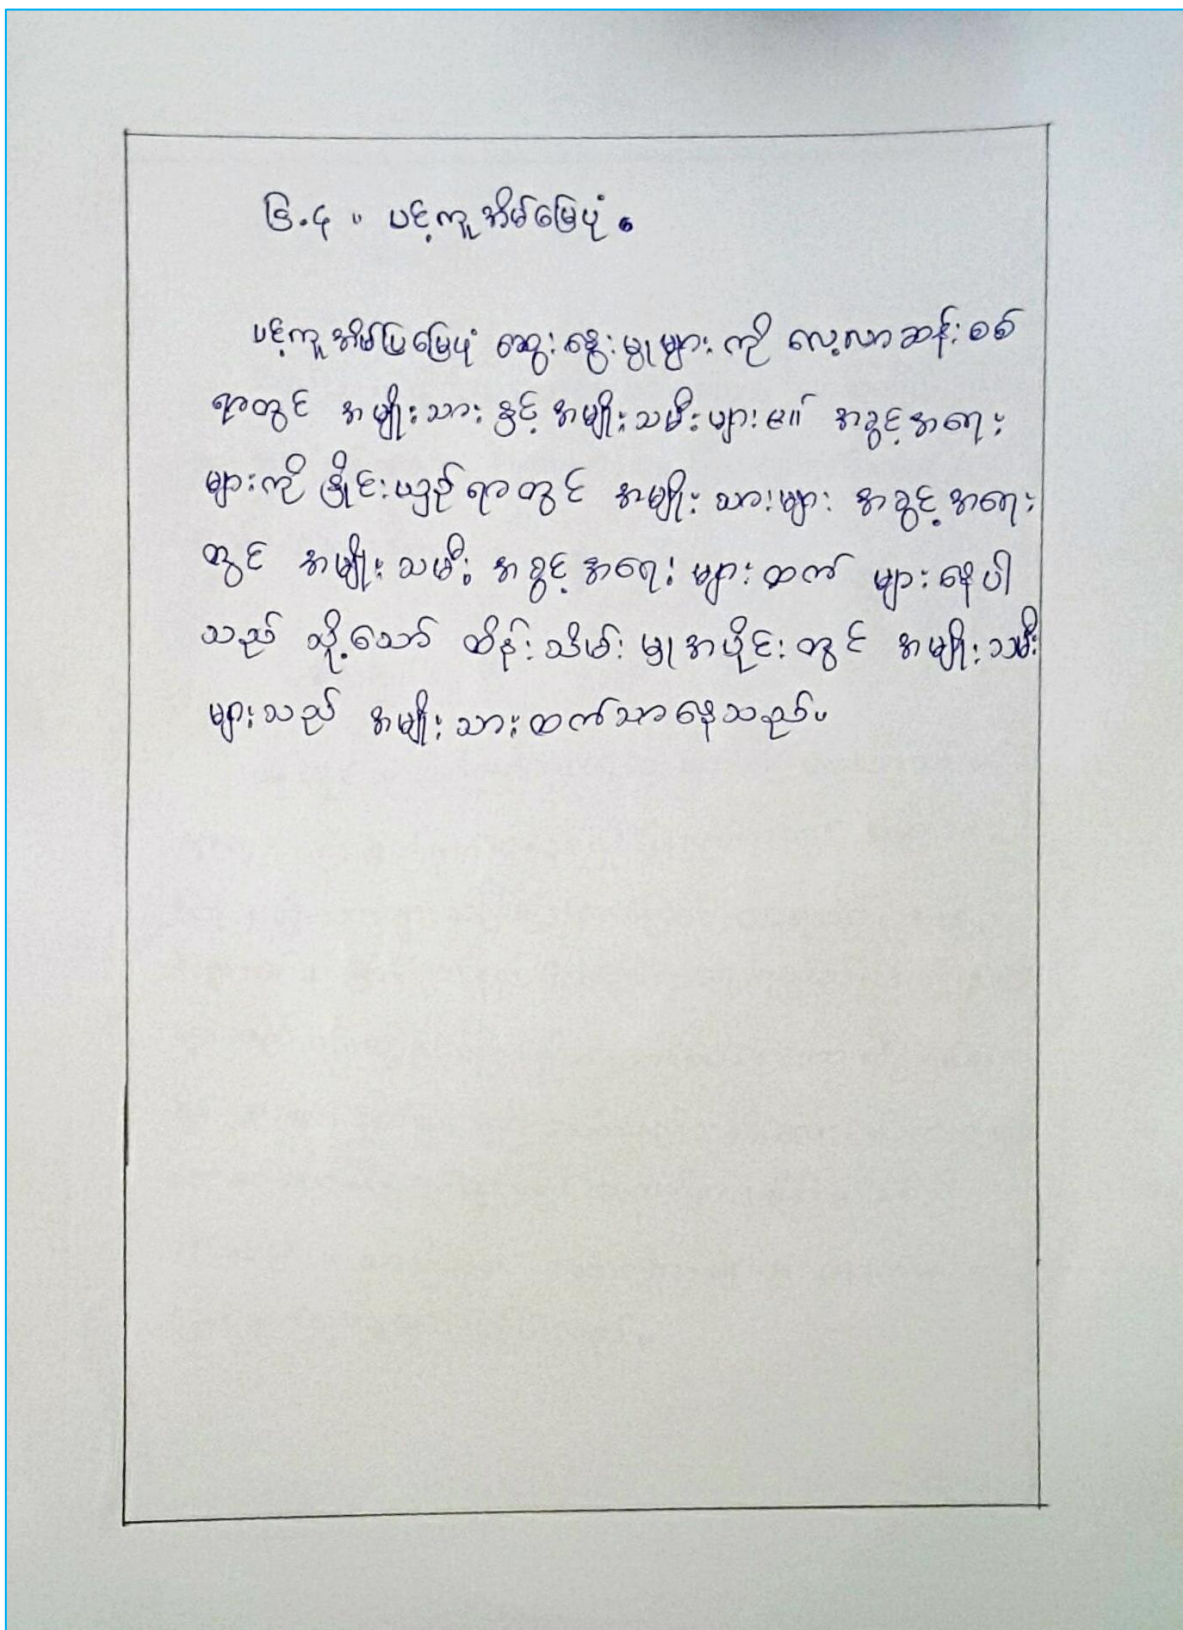 ၆.၄ ။ ပင့်ကူအိမ်မြေပုံ ။
ပင့်ကူအိမ်ပြမြေပုံ ဆွေးနွေးမှုများ ကို လေ့လာဆန်းစစ်
ရာတွင် အမျိုးသား နှင့် အမျိုးသမီးများ၏ အခွင့်အရေး
များကို နှိုင်းယှဉ်ရာတွင် အမျိုးသားများ အခွင့်အရေး
တွင် အမျိုးသမီး အခွင့်အရေး များထက် များနေပါ
သည် သို့သော် ထိန်းသိမ်း မှုအပိုင်းတွင် အမျိုးသမီး
များသည် အမျိုးသားထက်သာနေသည်။